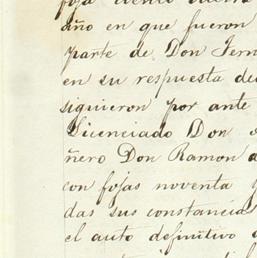 año en que fueron
parte de Don Fern
en su respuesta de
siguieron por ante
Licenciado Don
ñero Don Ramon a
con fojas noventa y
das sus constancias
el auto definitivo